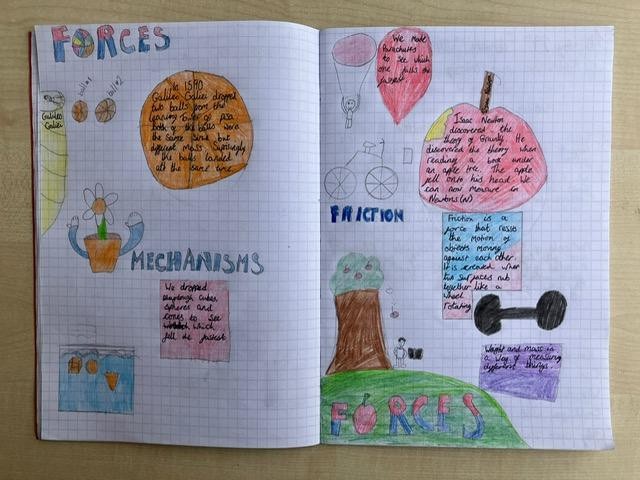 FORCES
ball#1
ball#2
Galileo
Galiei
In 1590
Galileo Galiei dropped
two balls from the
leaning tower of pisa
both of the balls were
the same size but
different mass. Suprisingly
the balls landed
at the same time
MECHANISMS
We dropped
playdough cubes
spheres and
cones to see
which
fell the fastest
We made
Parachutes
to see which
one falls the
Isaac Newton
discovered the
theory of Gravity. He
discovered the theory when
reading a book under
an apple tree. The apple
fell onto his head. We
can now measure in
Newtons(N)
FRICTION
Friction is a
force that resists
the motion of
objects moving
against each other
It is created when
two surfaces rub
together like a
wheel
rotating.
Weight and mass is
a way of measuring
different things.
FORCES